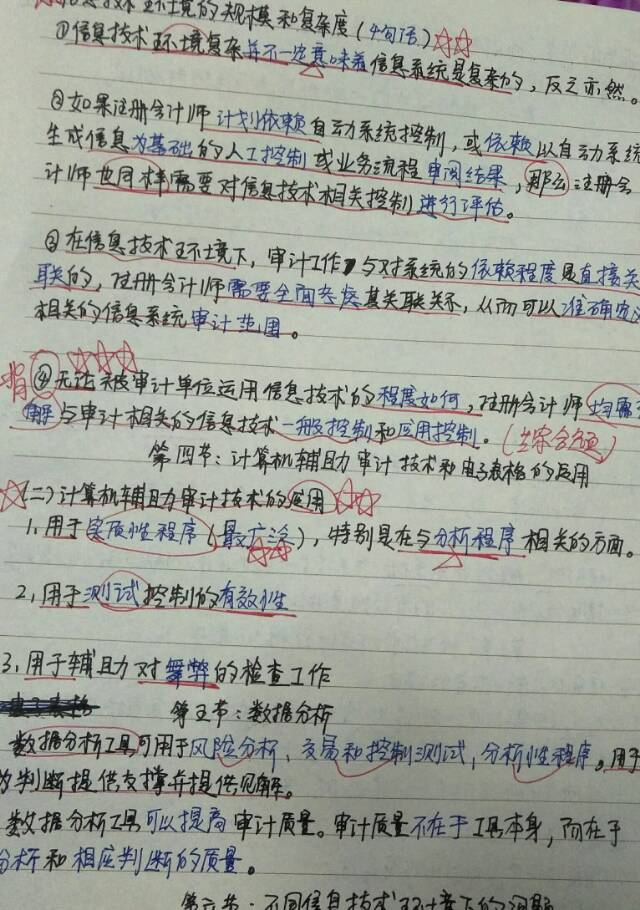 息技术环境的规模和复杂度（4句话）
①信息技术环境复杂并不一定意味着信息系统是复杂的，反之亦然。
②如果注册会计师计划依赖自动系统控制，或依赖以自动系统
生成信息为基础的人工控制或业务流程审阅结果，那么注册会
计师也同样需要对信息技术相关控制进行评估。
③在信息技术环境下，审计工作与对系统的依赖程度是直接关
联的，注册会计师需要全面考虑其关联关系，从而可以准确定义
相关的信息系统审计范围。
④无论被审计单位运用信息技术的程度如何，注册会计师均需
解与审计相关的信息技术一般控制和应用控制。
第四节：计算机辅助审计技术和电子表格的运用
（二）计算机辅助审计技术的应用
1.用于实质性程序（最广泛），特别是在与分析程序相关的方面。
2.用于测试控制的有效性
3.用于辅助对舞弊的检查工作
第五节：数据分析
数据分析工具可用于风险分析、交易和控制测试，分析性程序。用于
为判断提供支撑并提供见解。
数据分析工具可以提高审计质量。审计质量不在于工具本身，而在于
分析和相应判断的质量。
第六节：不同信息技术环境下的问题